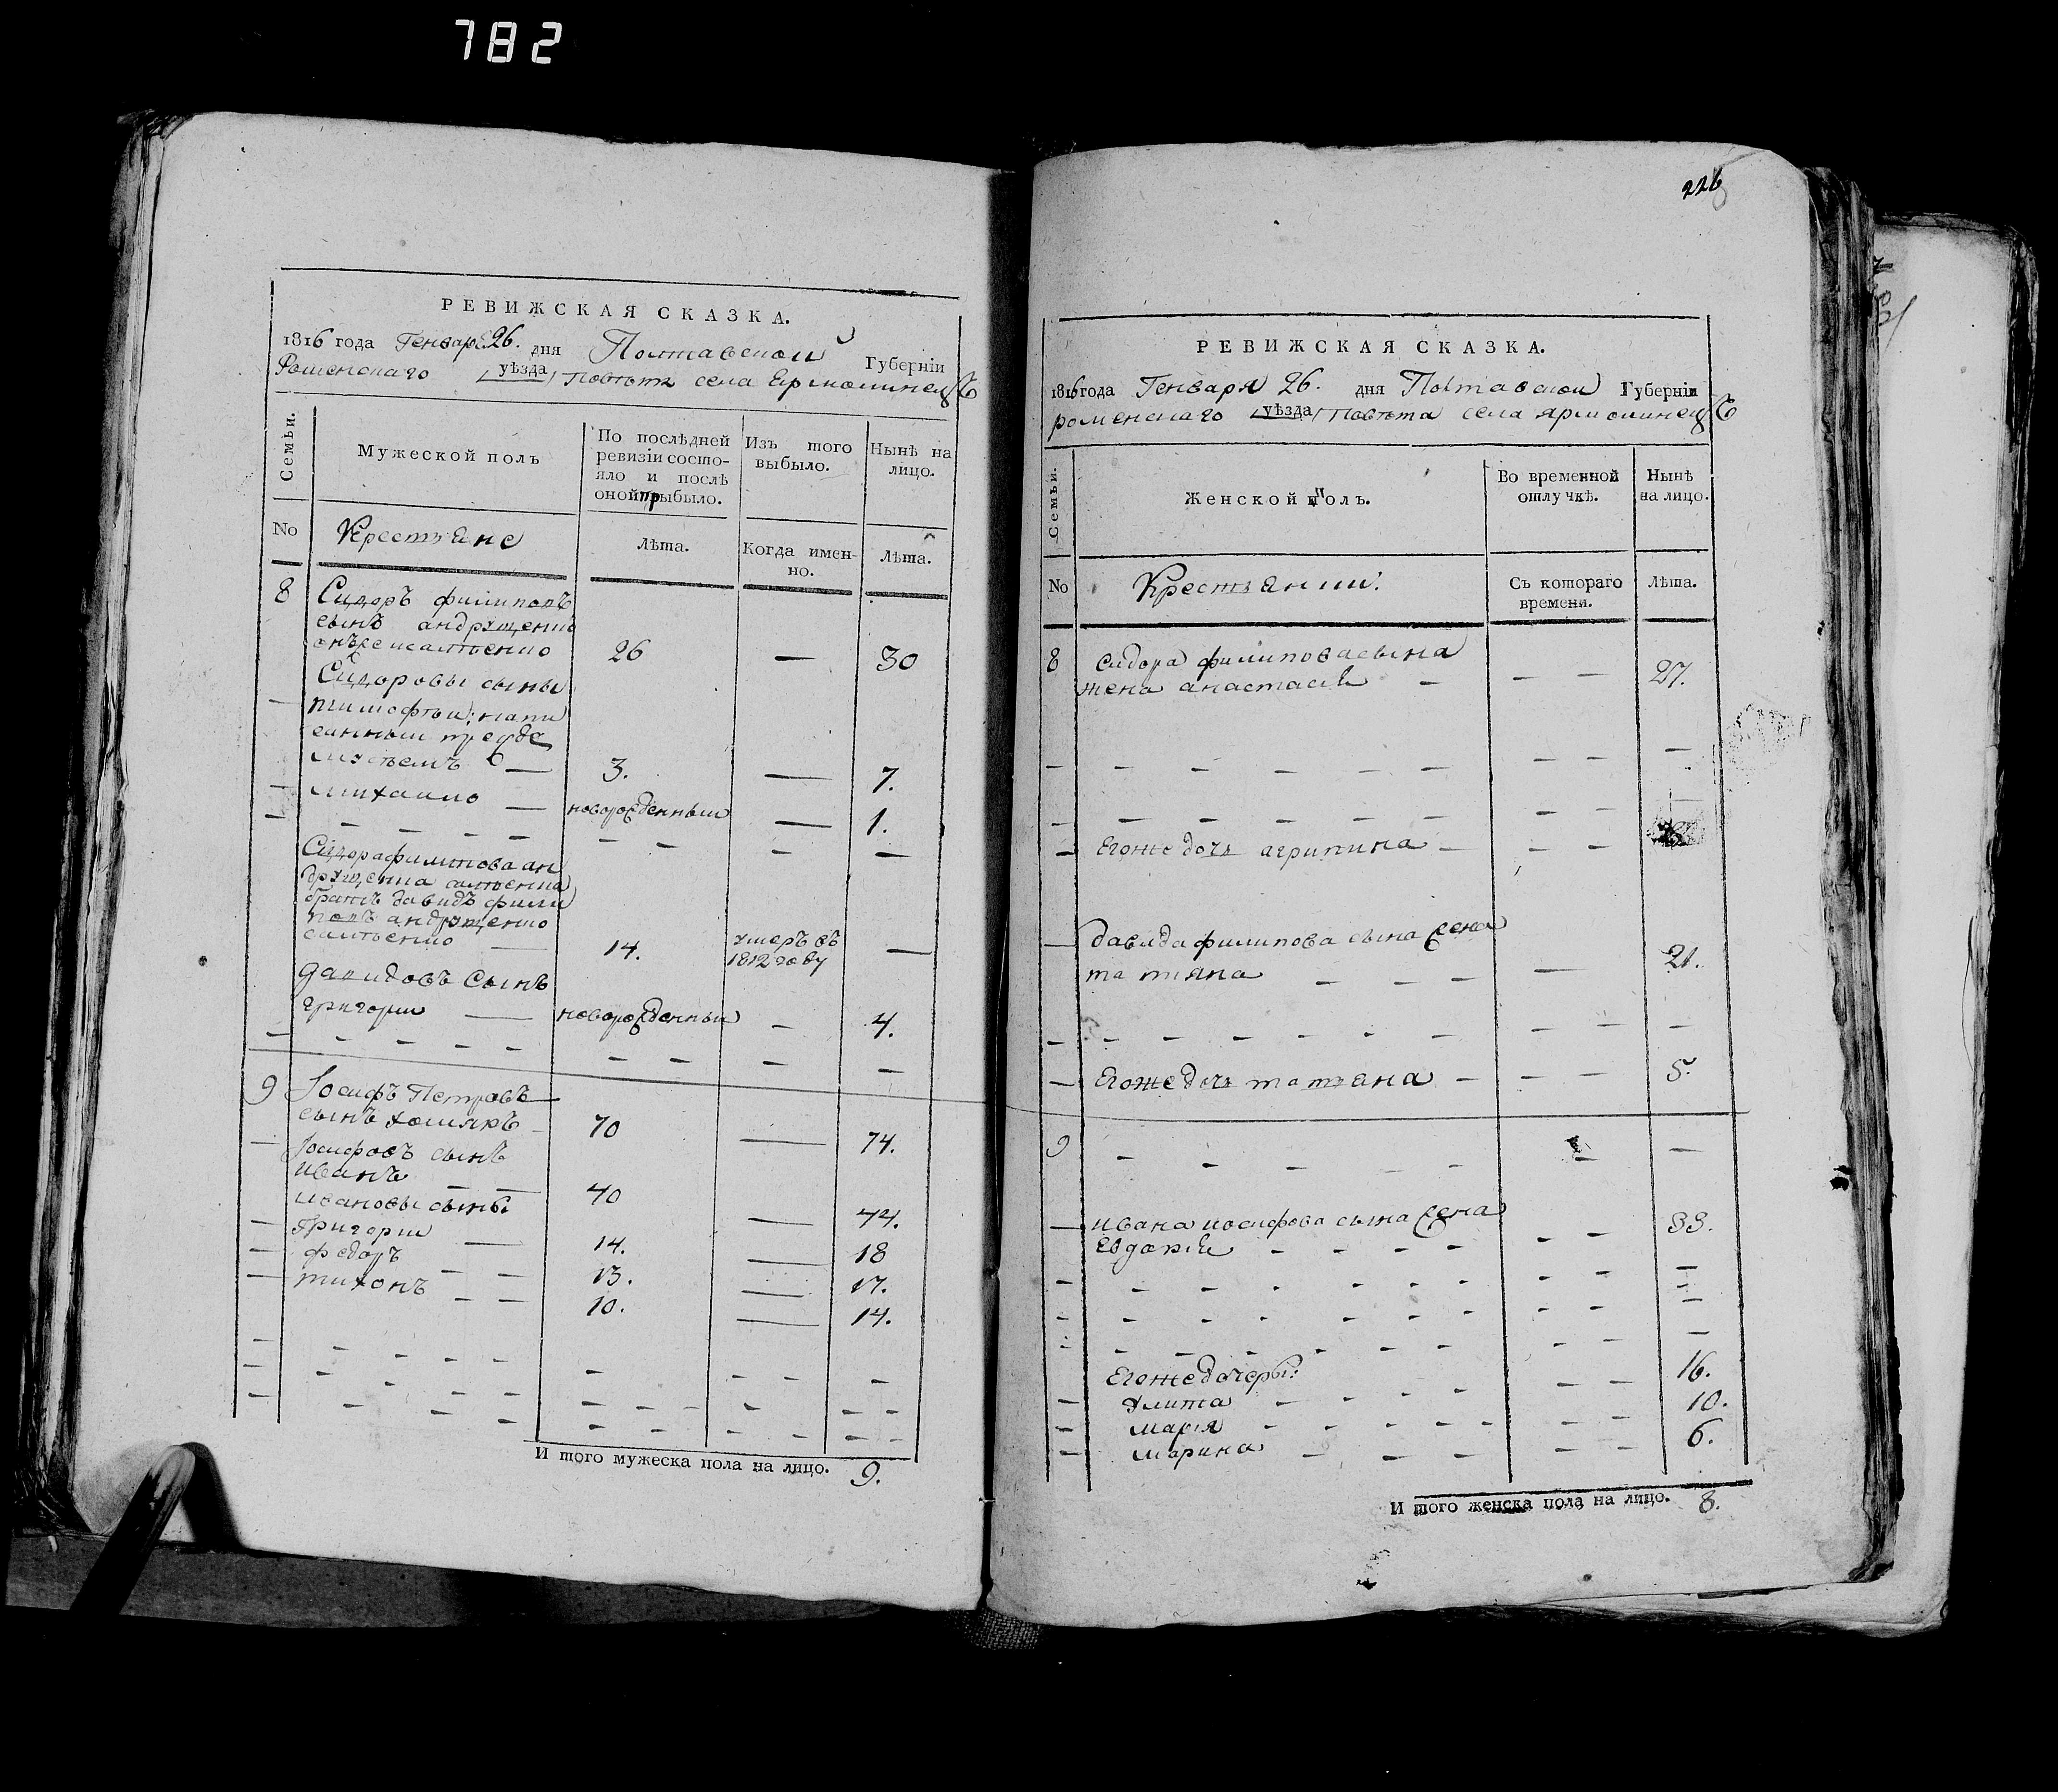 782
РЕВИЖСКАЯ СКАЗКА.
1816 года Генваря 26. дня Полтавской Губерніи
Роменскаго уѣзда /повѣта села Ярмолинецъ
Семьи.
Мужеской полъ
По послѣдней ревизіи состо-
яло и послѣ
оной прибыло.
Изъ того
выбыло.
Нынѣ на
лицо.
No
Крестьяне
Лѣта.
Когда имен-
но.
Лѣта.
8 Сидоръ филиповъ
сынъ андрущенко
26 — 30
Сидоровы сыны
тимофѣй; напи
санный прежде
3. — 7.
михайло — новорожденный — 1.
Сидора филипова ан
друщенка
братъ давидъ фили
повъ андрущенко
14. умеръ въ
1812 году —
давидовъ сынъ
григорий — новорожденный — 4.
9 Іосифъ Петровъ
сынъ хомякъ 70 — 74.
Іосифовъ сынъ
иванъ 40 — 44.
ивановы сыны
григорий — 14. — 18
федоръ 13. — 17.
тихонъ 10. — 14.
И того мужеска пола на лицо. 9.
226
РЕВИЖСКАЯ СКАЗКА.
1816 года Генваря 26. дня Полтавской Губерніи
роменскаго уѣзда /повѣта села ярмолинецъ
Семьи.
Женской полъ.
Во временной
отлучкѣ.
Нынѣ
на лицо.
No
Крестьянки.
Съ котораго
времени.
Лѣта.
8 Сидора филипова сына
жена анастасія — 27.
Егоже дочь агрипина
давида филипова сына жена
татияна — 21.
Егоже дочь татьяна — 5.
9
ивана иосифова сына жена
Евдокія 39.
Егоже дочеры:
Улита 16.
марія 10.
марина 6.
И того женска пола на лицо. 8.